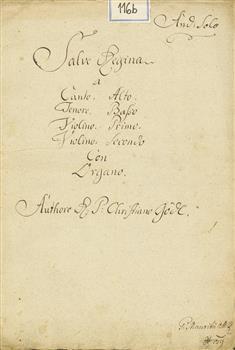 116b
And: Solo
Salve Regina
a
Canto. Alto.
Tenore. Basso
Violino. Primo.
Violino. Secondo
Con
Organo.
Authore R. P. Christiano